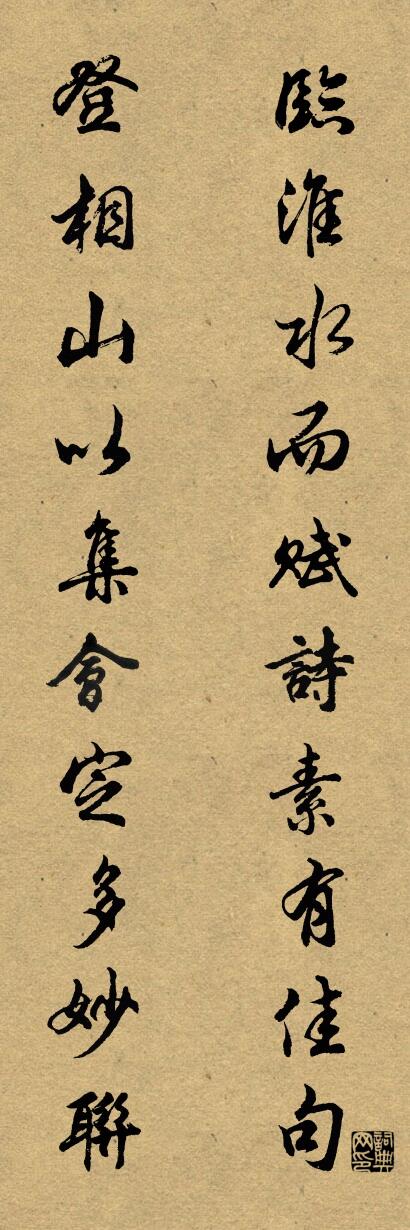 臨淮水而賦詩素有佳句
登相山以集會定多妙聯
詞典網印